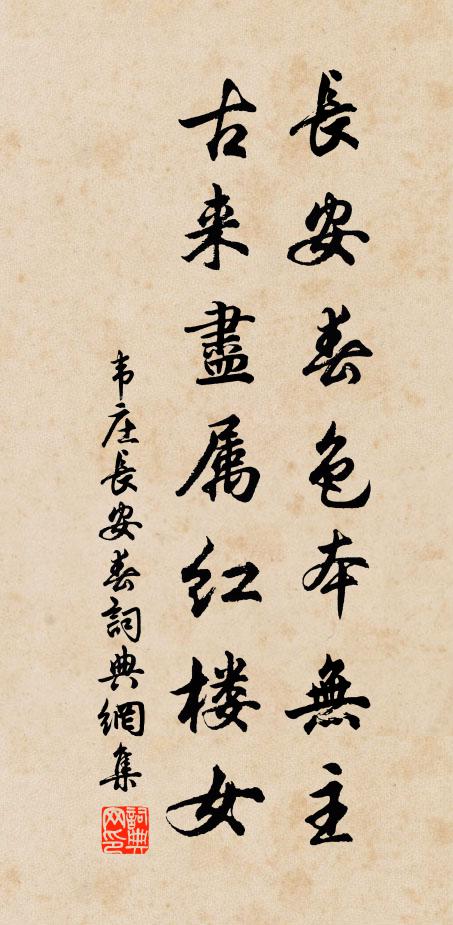 長安春色本無主
古来盡属紅楼女
韦庄長安春詞典網集
詞典网印